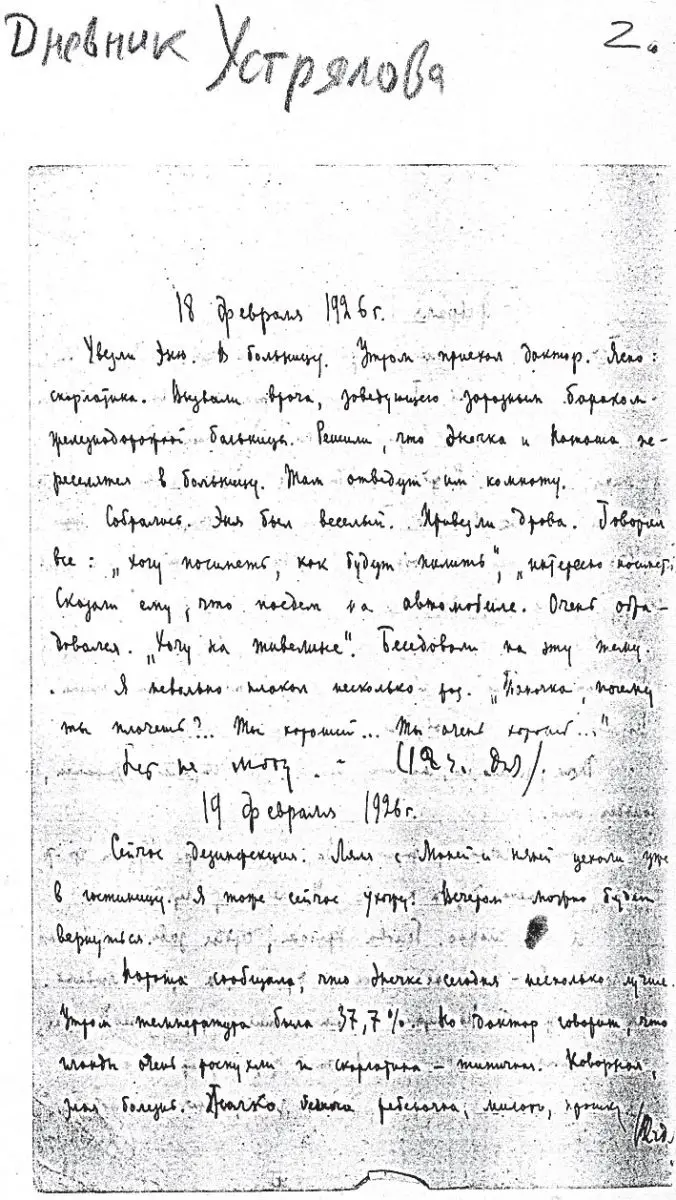 Дневник Устрялова 2.
18 февраля 1926 г.
Увезли Эню. В больницу. Утром приехал доктор. Ясно:
скарлатина. Вызвали врача, заведующего заразным бараком
железнодорожной больницы. Решили, что Энечка и Наташа пе-
реселятся в больницу. Там отведут им комнату.
Собрались. Эня был веселый. Привезли дрова. Говорил
все: „хочу посмотреть, как будут пилить", „интересно
Сказали ему, что поедем на автомобиле. Очень обра-
довался. „Хочу на Беседовали на эту тему.
Я невольно плакал несколько раз. почему
ты плачешь?.. Ты хороший... Ты очень хороший..."
не могу – (12 ч. дня).
19 февраля 1926 г.
Сейчас дезинфекция. Ляля с и няней уехали уже
в гостиницу. Я тоже сейчас ухожу. Вечером можно будет
вернуться.
Наташа сообщала, что Энечке сегодня – несколько лучше.
Утром температура была 37,7%. Но доктор говорит, что
гланды очень распухли и скарлатина – типичная. Коварная,
злая болезнь. Жалко бедного ребеночка, милого, крошку